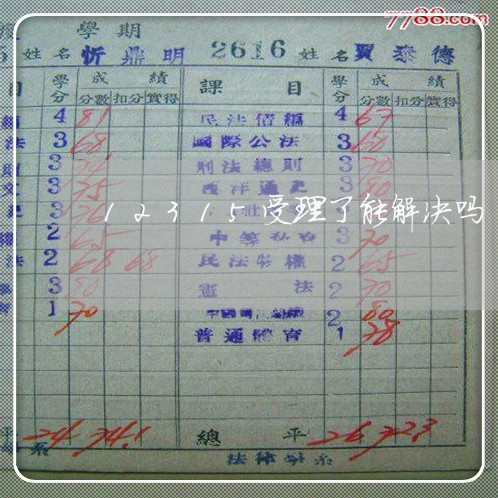 7788.com
學期
姓名忻鼎明 2616 姓名賈泰德
目 學分 成績 課目 學分 成績
分數 扣分 實得 分數 扣分 實得
4 81 民法債編 4 67
法 3 68 國際公法 3 60
3 刑法總則 3 70
3 75 西洋通史 3
3
12315受理了能解决吗
2 65 中等 3 70
法 2 68 68 民法物權 2 65
3 80 憲法 2 70
1 70 2 80
普通體育 1 78
平 24 74.1 總平 26 72.3
系 法律學系